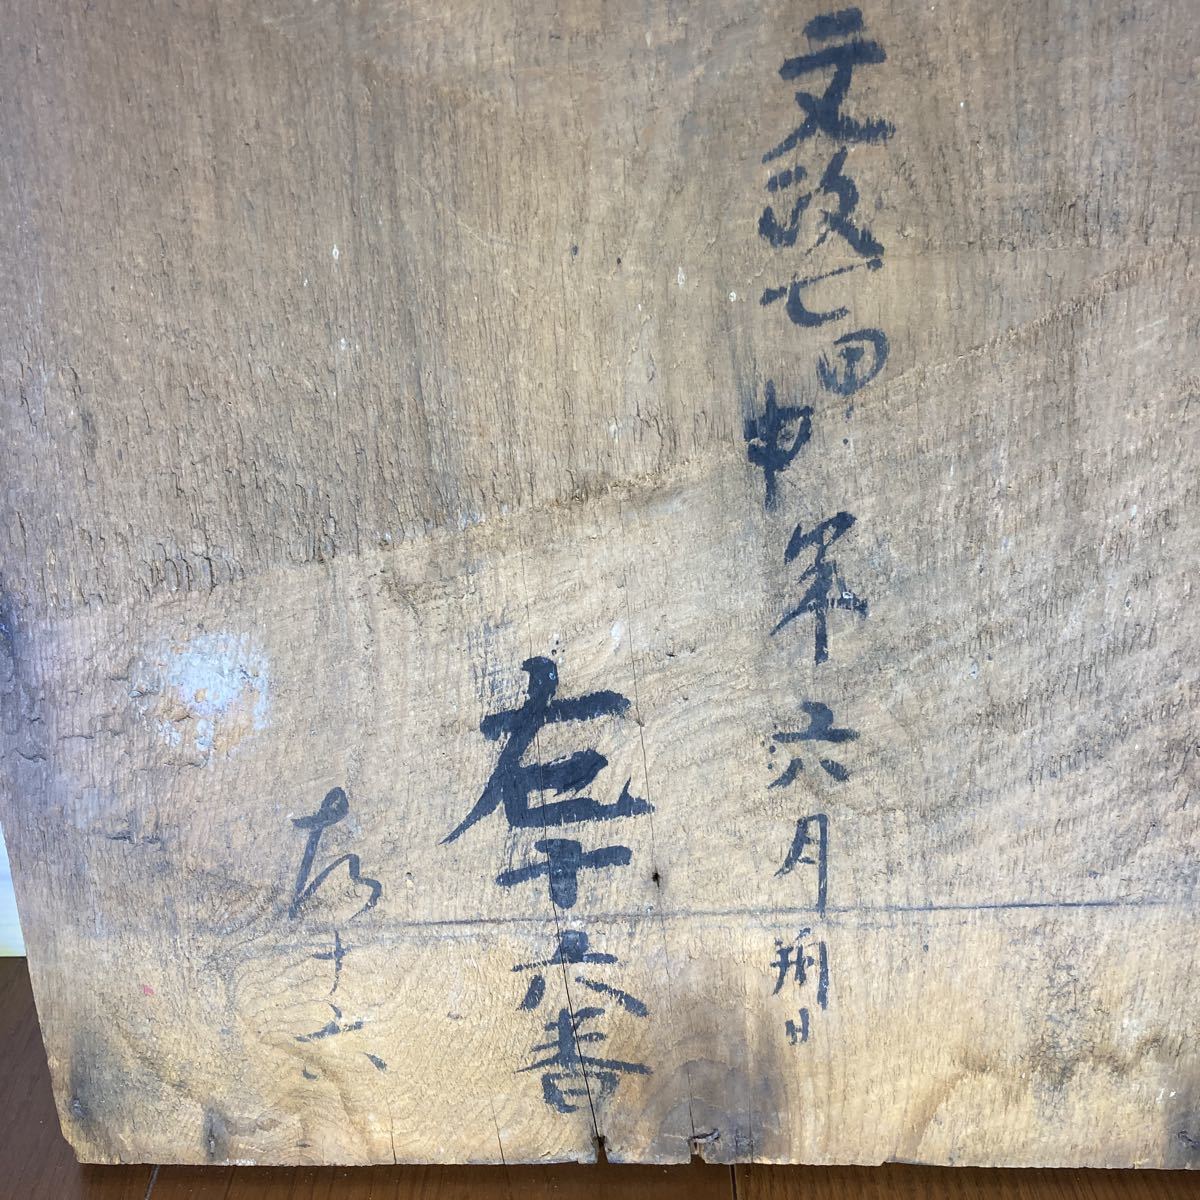 文政七甲申年六月朔日
左十六番
左十六